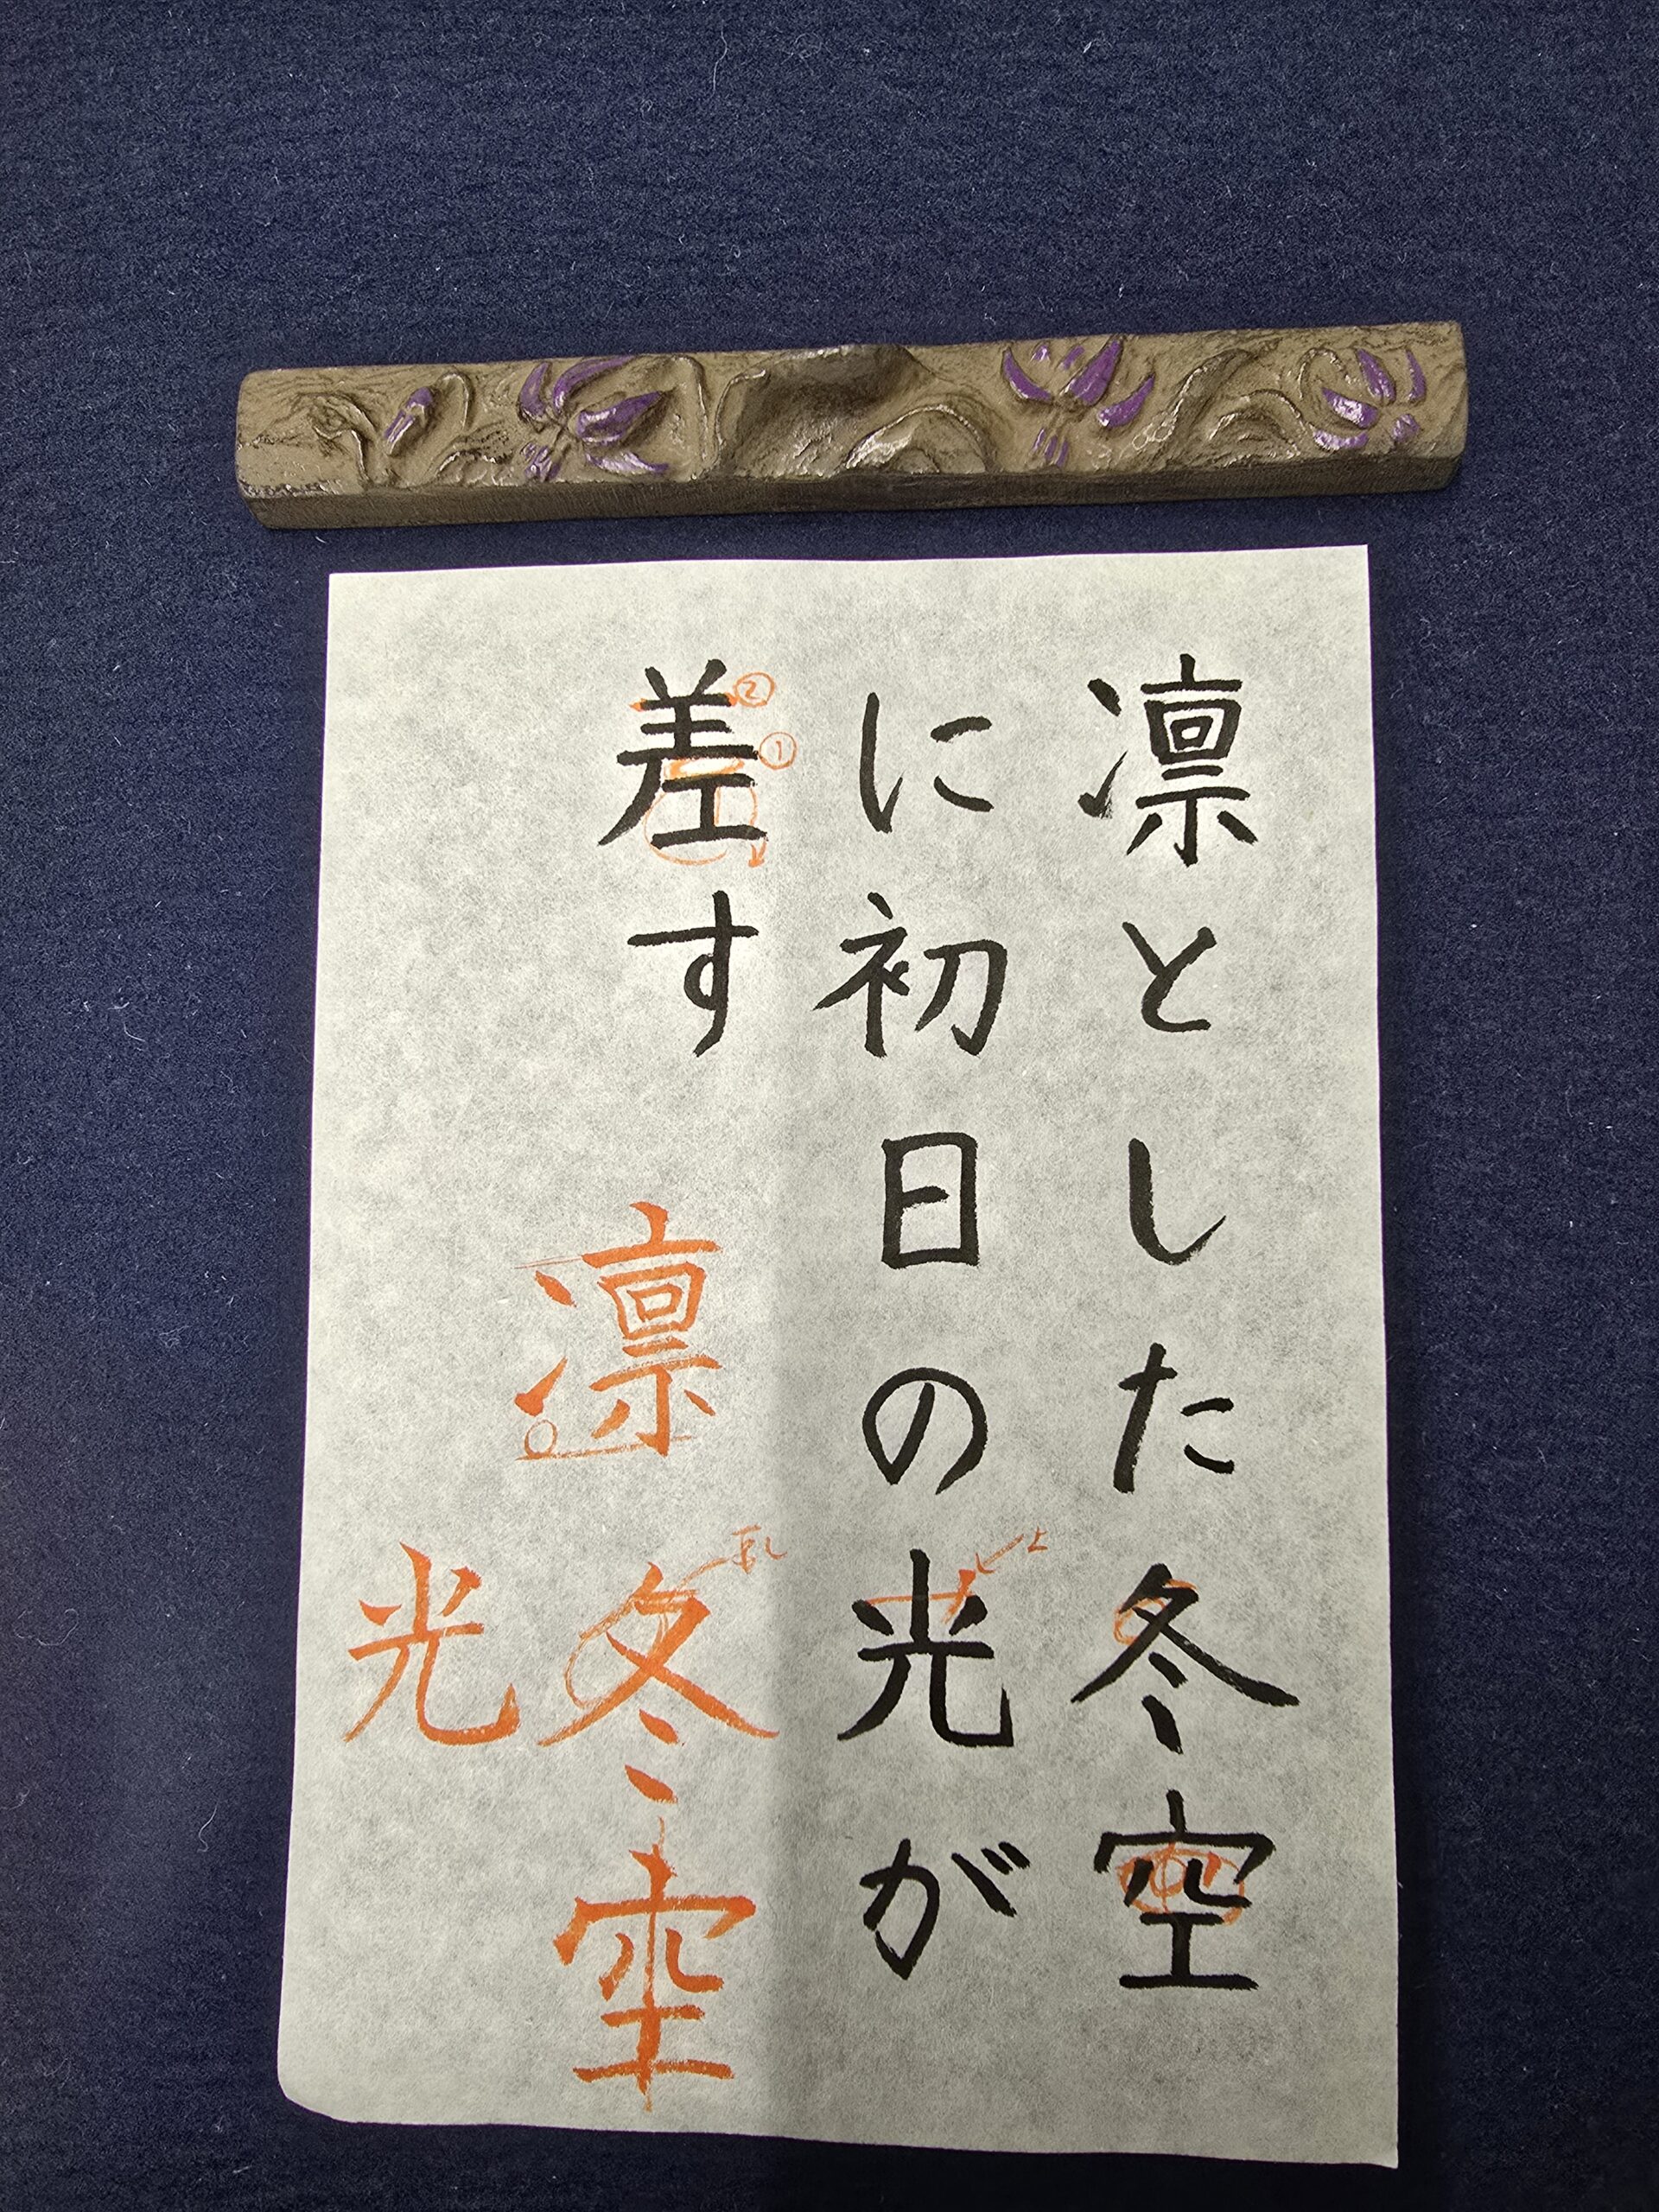 凛とした冬空
に初日の光が
差す
②
①
上
凛
冬空
光